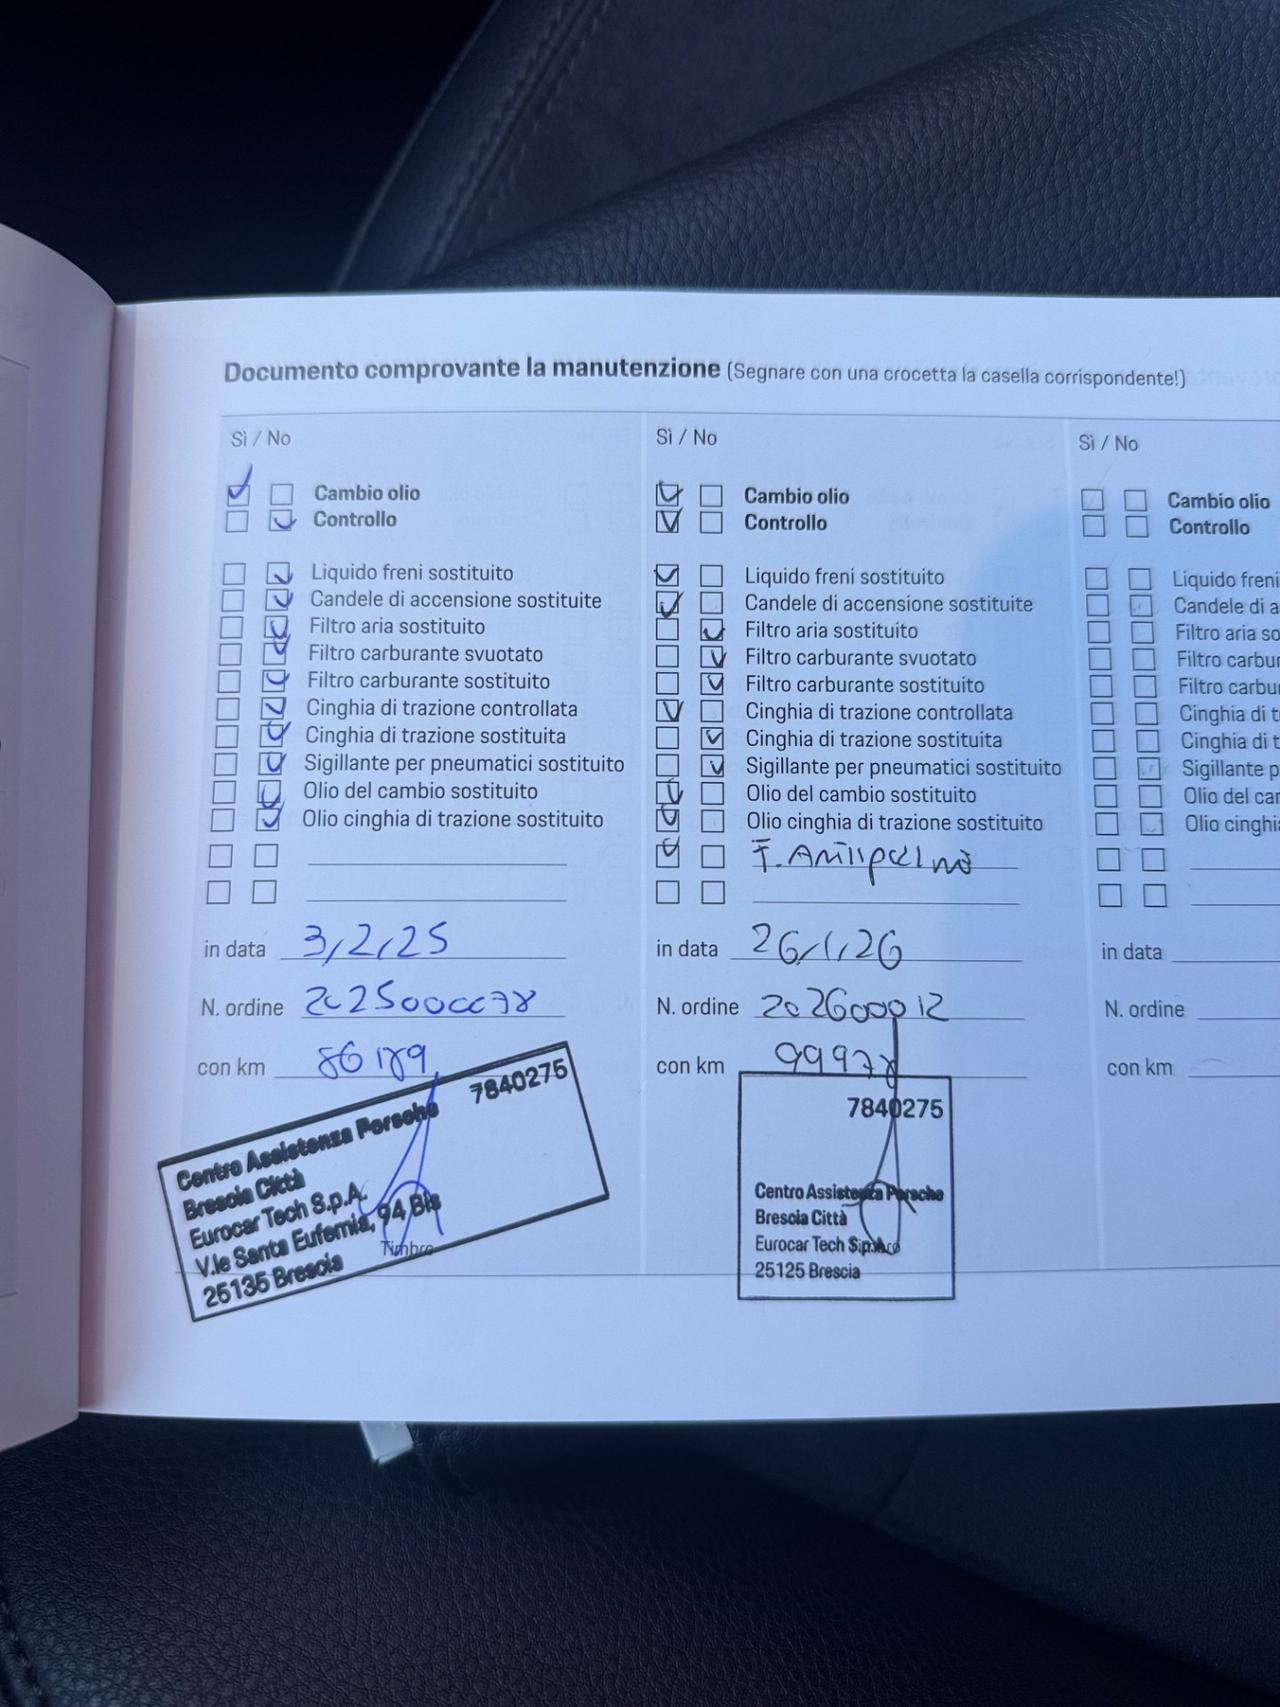 Documento comprovante la manutenzione (Segnare con una crocetta la casella corrispondente!)
Sì / No
Cambio olio
Controllo
Liquido freni sostituito
Candele di accensione sostituite
Filtro aria sostituito
Filtro carburante svuotato
Filtro carburante sostituito
Cinghia di trazione controllata
Cinghia di trazione sostituita
Sigillante per pneumatici sostituito
Olio del cambio sostituito
Olio cinghia di trazione sostituito
in data 3/2/25
N. ordine
con km 86189
7840275
Centro Assistenza Porsche
Brescia Città
Eurocar Tech S.p.A.
V.le Santa Eufemia, 94 Bis
25135 Brescia
Timbro
Sì / No
Cambio olio
Controllo
Liquido freni sostituito
Candele di accensione sostituite
Filtro aria sostituito
Filtro carburante svuotato
Filtro carburante sostituito
Cinghia di trazione controllata
Cinghia di trazione sostituita
Sigillante per pneumatici sostituito
Olio del cambio sostituito
Olio cinghia di trazione sostituito
F. Antipolline
in data 26/1/26
N. ordine 202600012
con km 99978
7840275
Centro Assistenza Porsche
Brescia Città
Eurocar Tech S.p.A.
25125 Brescia
Sì / No
Cambio olio
Controllo
Liquido freni
Candele di a
Filtro aria so
Filtro carbur
Filtro carbu
Cinghia di t
Cinghia di t
Sigillante p
Olio del car
Olio cinghi
in data
N. ordine
con km